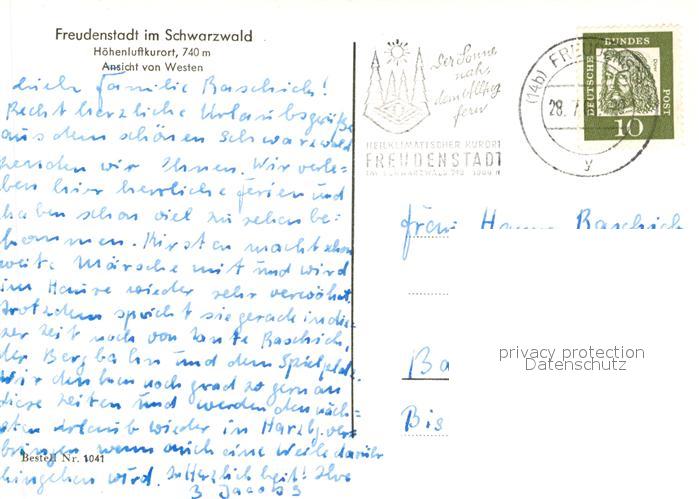 Freudenstadt im Schwarzwald
Höhenluftkurort, 740 m
Ansicht von Westen
Liebe Familie Baschich!
Recht herzliche Urlaubsgrüße
aus dem schönen Schwarzwald
senden wir Ihnen. Wir verle=
ben hier herrliche Ferien und
haben schon viel zu sehen be=
kommen. Kirsten macht schon
weite Märsche mit und wird
im Hause wieder sehr verwöhnt.
Trotzdem spricht sie gerade in die=
ser Zeit noch von Tante Baschich,
der Bergbahn und dem Spielplatz.
Wir denken noch grad so gern an
diese Zeiten und werden den näch=
sten Urlaub wieder in Harzb. ver=
bringen, wenn auch eine Weile darüber
hingehen wird. Herzlichkeit! Ihre
3 Jacobs
Bestell Nr. 1041
Der Sonne
nah,
dem Alltag
fern
HEILKLIMATISCHER KURORT
FREUDENSTADT
IM SCHWARZWALD 740-1000 M
(14b) FREUDENSTADT
28.7.
y
DEUTSCHE BUNDESPOST
10
Frau Baschich
Ba
Bis
privacy protection
Datenschutz